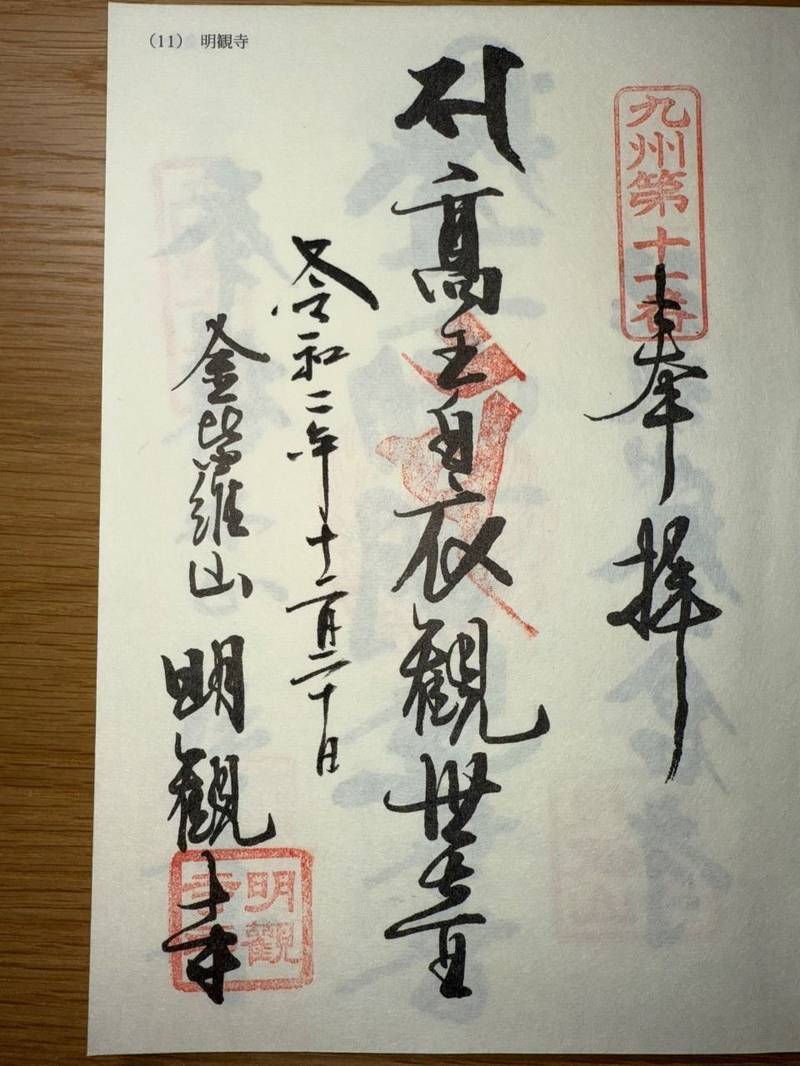 (11) 明観寺
九州第十一番
奉拝
高王白衣観世音
令和二年十二月二十日
金毘羅山 明観寺
明觀寺